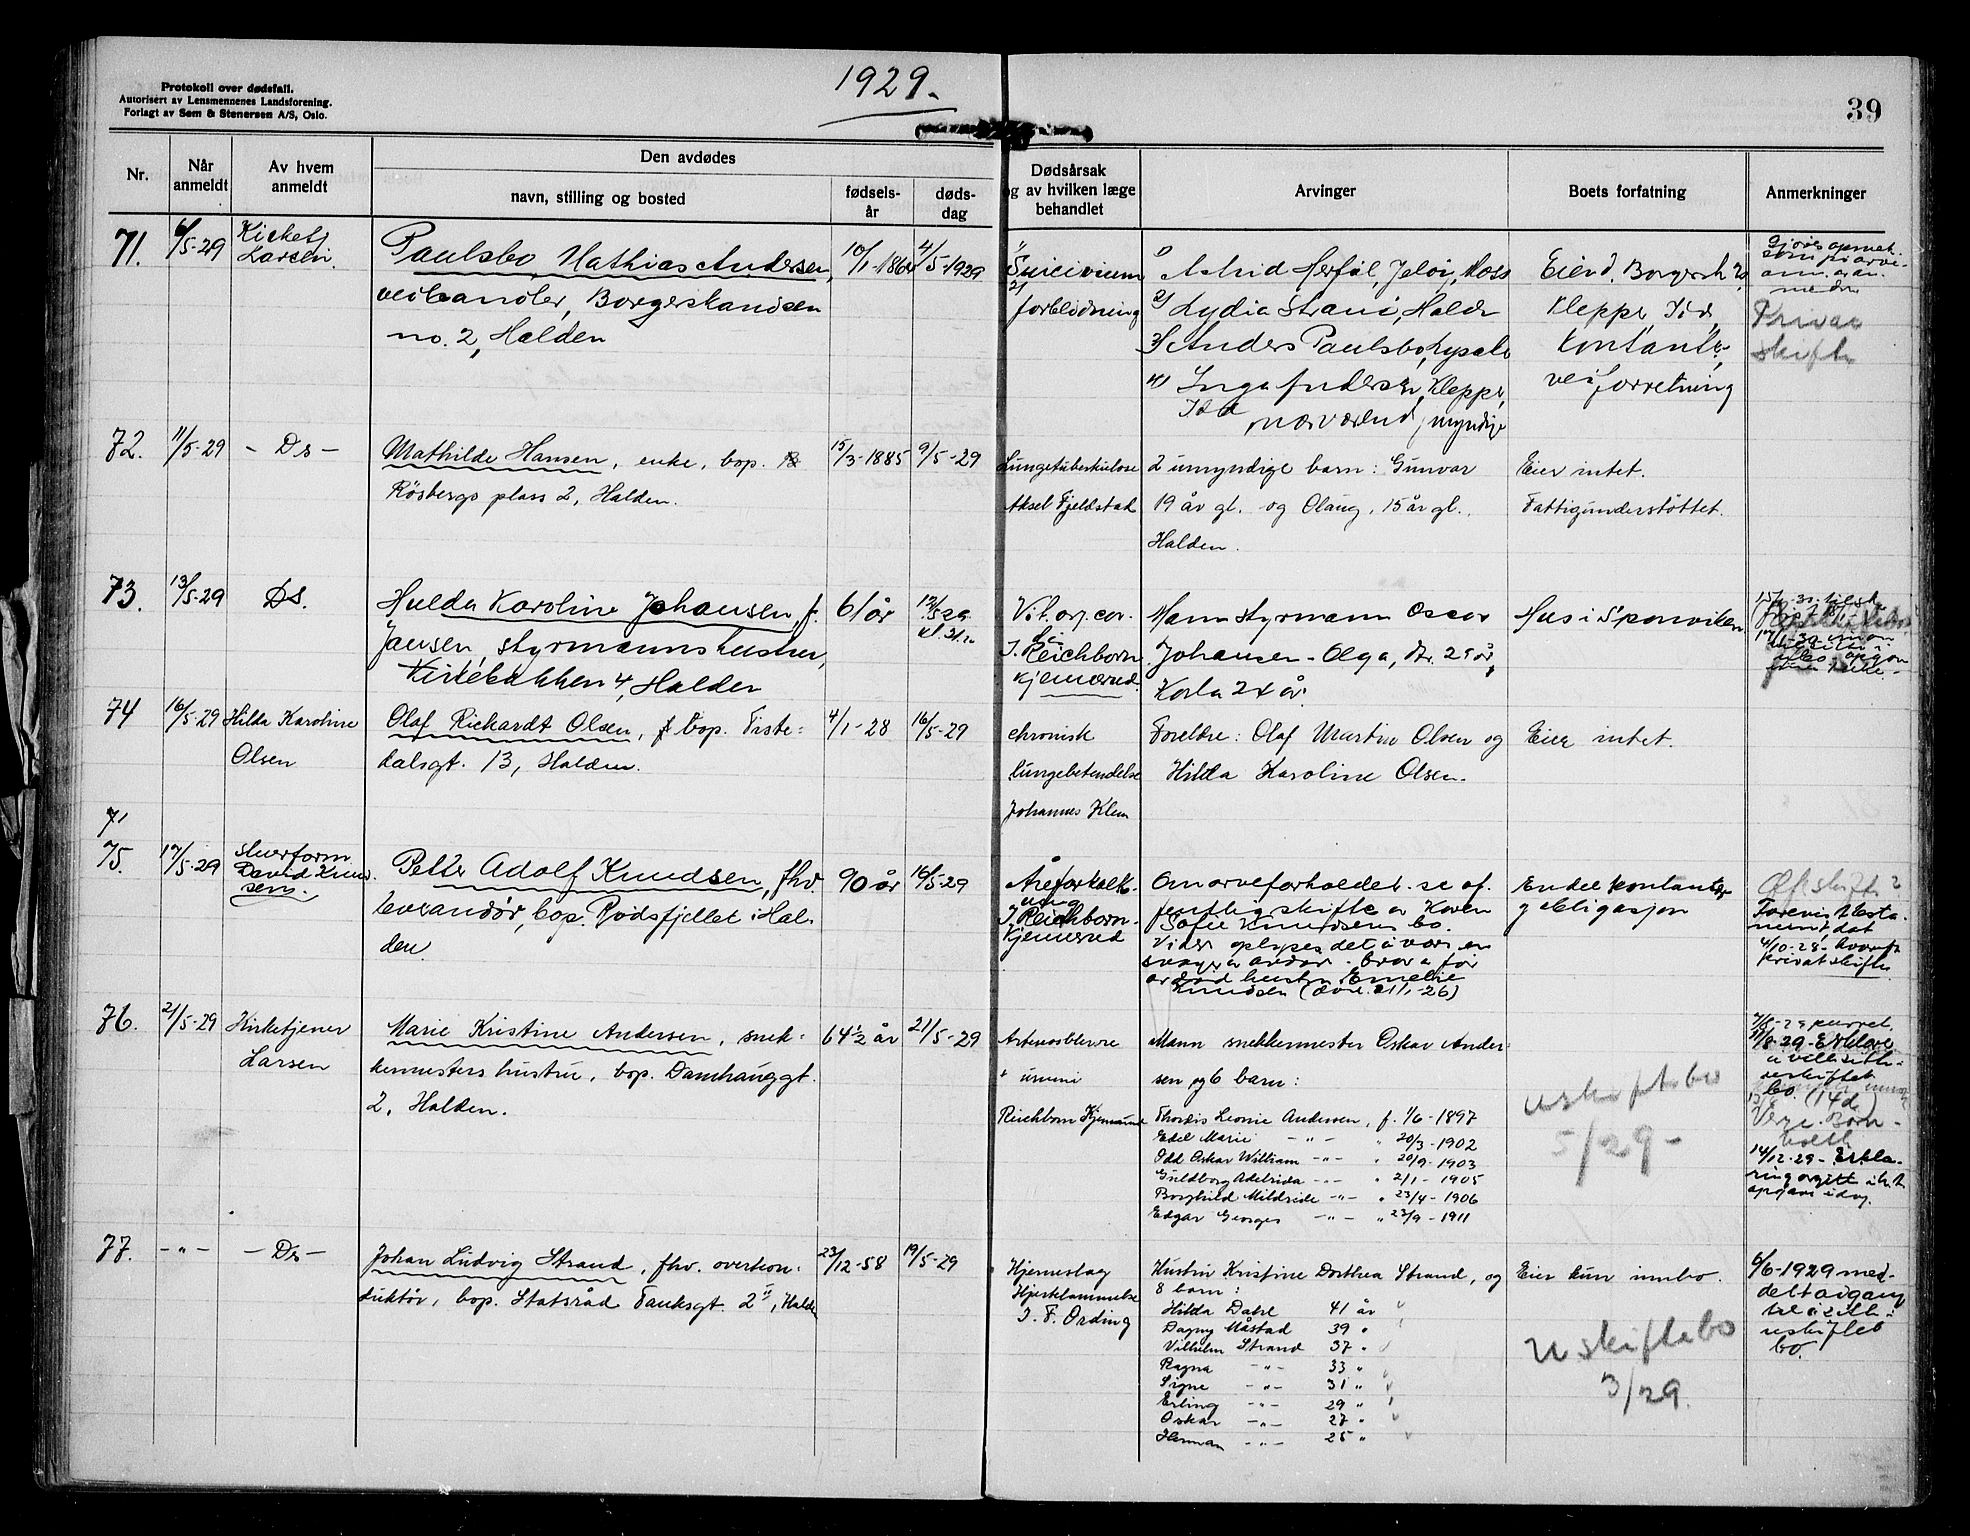 1929.
Protokoll over dødsfall.
Autorisert av Lensmennenes Landsforening.
Forlagt av Sem & Stenersen A/S, Oslo.
39
Nr.
Når anmeldt
Av hvem anmeldt
Den avdødes
navn, stilling og bosted
fødsels-år
døds-dag
Dødsårsak
og av hvilken læge
behandlet
Arvinger
Boets forfatning
Anmerkninger
71.
6/5-29
Kirketj
Larsen.
Paulsbo, Mathias Andersen,
vedhandler, Borgerskansen
no. 2, Halden
10/1-1864
4/5-1929
1)
2)
forblødning
1) Astrid Herføl, Jeløi, Moss
2) Lydia Strand, Halden
3) Anders Paulsbo, Lysekil
4) Inga Andersen, Kleppe,
Idd
nærværend, myndige
Eiend. Borgersk. 2,
Kleppe, Idd,
Kontanter,
vedforretning
Privat
skifte
72.
11/5-29
- Ds -
Mathilde Hansen, enke, bop.
Røsbergs plass 2, Halden.
15/3-1885
9/5-29
Lungetuberkulose
Aksel Fjeldstad
2 umyndige barn: Gunvar
19 år gl. og Olaug, 15 år gl.
Halden.
Eier intet.
Fattigunderstøttet.
73.
13/5-29
Ds.
Hulda Karoline Johansen, f.
Jansen, styrmannshustru,
Kirkebakken 4, Halden
61 år
12/5-29
Vit. org. cor.
I. Reichborn
Kjennerud.
Mann styrmann Oscar
Johansen - Olga, 29 år,
Karla 24 år.
Hus i Sponviken
74
16/5-29
Hilda Karoline
Olsen
Olaf Richardt Olsen, bop. Tiste-
dalsgt. 13, Halden.
4/1-28
16/5-29
chronisk
lungebetendelse
Johannes Klem
Foreldre: Olaf Martin Olsen og
Hilda Karoline Olsen.
Eier intet.
71
75.
17/5-29
David Knud-
sen.
Petter Adolf Knudsen, fhv.
leverandør, bop. Rødsfjellet i Hal-
den.
90 år
16/5-29
Åreforkalk-
ning
I. Reichborn-
Kjennerud
Om arveforholdet se of-
fentlig skifte av Karen
Sofie Knudsens bo.
hustru Emelie
Knudsen
En del kontanter
og obligasjon
Off. skifte?
4/10-28
privat skifte
76.
21/5-29
Kirketjener
Larsen
Marie Kristine Andersen, snek-
kermesters hustru, bop. Damhauggt.
2, Halden.
64½ år
21/5-29
Reichborn Kjennerud
Mann snekkermester Oskar Ander-
sen og 6 barn:
Thordis Leonie Andersen, f. 1/6-1897
Edel Marie -"- " 20/3-1902
Odd Oskar William -"- " 20/9-1903
Guldborg Adelrida -"- " 2/1-1905
Borghild Mildride -"- " 23/4-1906
Edgar Georges -"- " 23/9-1911
uskiftebo
5/29-
11/8-29 - Erklære
uskiftet
bo.
14/12-29 - Erklæ-
77.
-"-
- Ds -
Johan Ludvig Strand, fhv. overkon-
duktør, bop. Statsråd Tanksgt. 2 II, Halden
23/12-58
19/5-29
Hjerneslag
Hjertelammelse
I. F. Ording
Hustru Kristine Dorthea Strand, og
8 barn:
Hilda Dahl 41 år
Dagny Måstad 39 "
Vilhelm Strand 37 "
Ragna -"- 33 "
Signe -"- 31 "
Erling -"- 29 "
Oskar -"- 27 "
Herman -"- 25 "
Eier kun innbo.
Uskiftebo
3/29.
6/6-1929 med-
delt adgang
til å sitte i
uskiftet
bo.